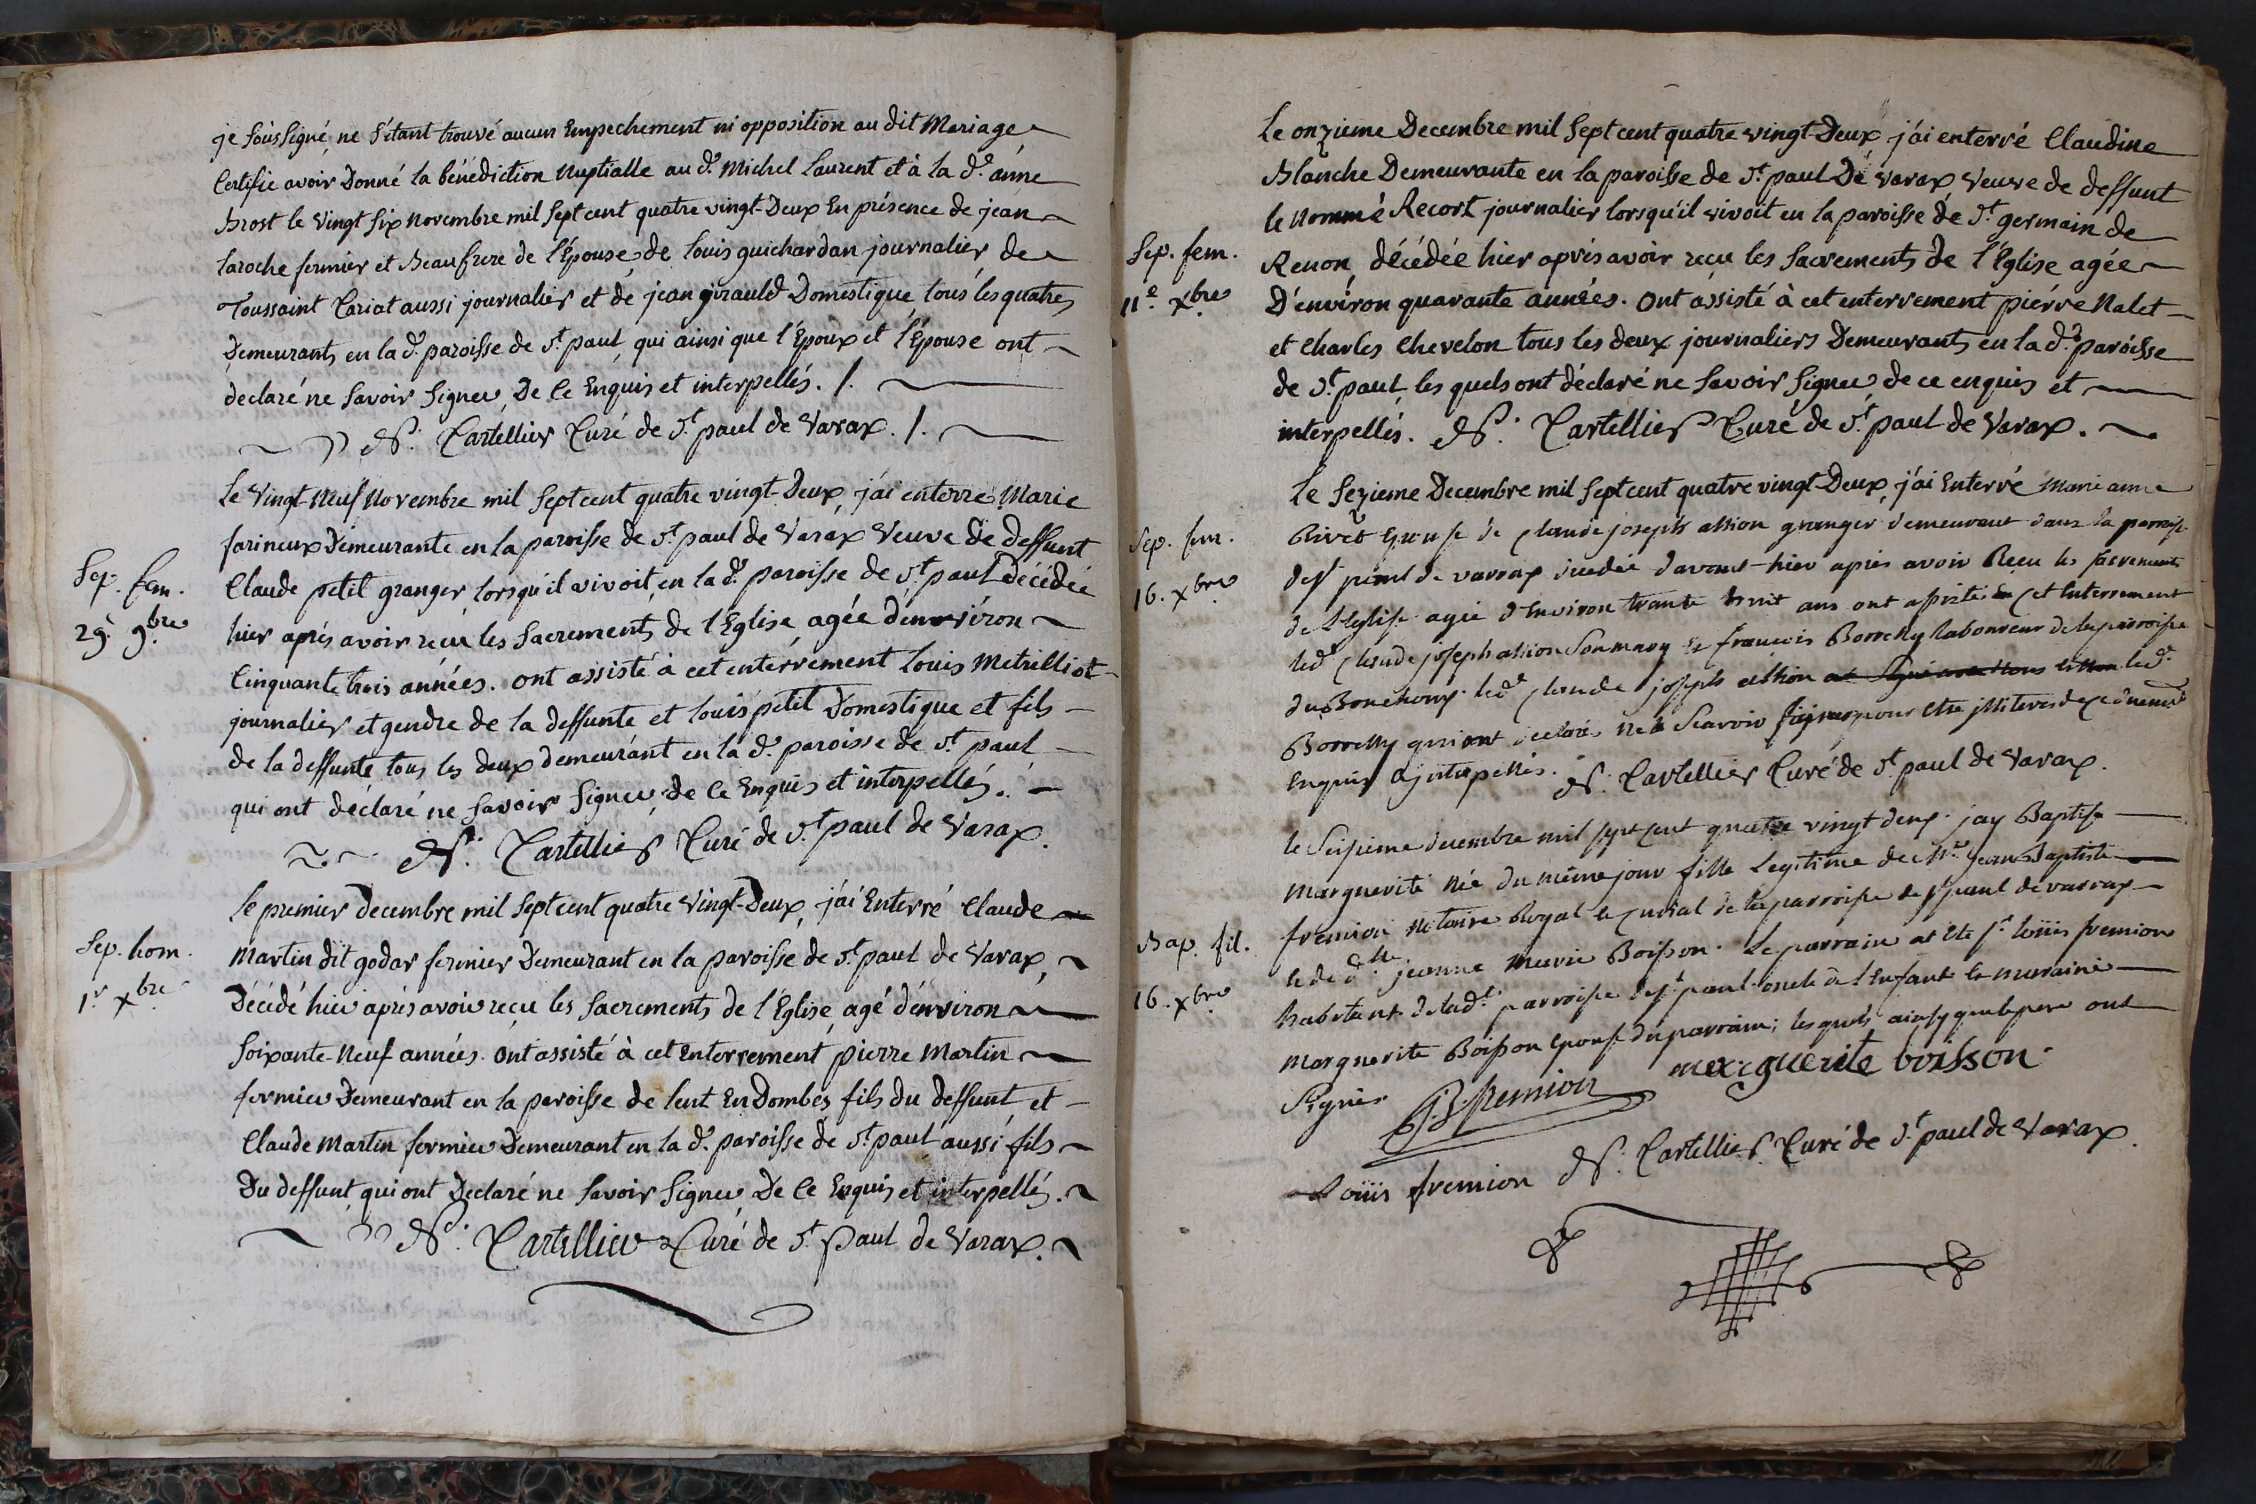 je soussigné, ne s'étant trouvé aucun Empechement ni opposition au dit Mariage
Certifie avoir Donné la bénédiction Nuptialle au d. Michel Laurent et à la de. anne
Brost le vingt six novembre mil sept cent quatre vingt-Deux En présence de jean
Laroche fermier et Beaufrere de l'Épouse, de Louis guichardan journalier de
Toussaint Cariat aussi journalier et de jean girauld Domestique tous les quatres
Demeurants en la d. paroisse de St. paul, qui ainsi que l'Époux et l'Épouse ont
declaré ne savoir signer, De Ce Enquis et interpellés. /.
Cartellier Curé de St. paul de Varax. /.
Sep. fem.
29. 9bre
Le vingt-Neuf Novembre mil sept cent quatre vingt-Deux, j'ai enterré Marie
farineux Demeurante en la paroisse de St. paul de Varax Veuve de deffunt
Claude petit granger lorsqu'il vivoit, en la d. paroisse de St. paul Décédée
hier après avoir reçu les Sacrements de l'Eglise agée d'environ
Cinquante trois années. ont assisté à cet enterrement Louis Metrilliot
journalier et gendre de la deffunte et Louis petit Domestique et fils
de la deffunte, tous les deux demeurant en la d. paroisse de St. paul
qui ont déclaré ne savoir signer, de Ce Enquis et interpellés.
Cartellier Curé de St. paul de Varax.
Sep. hom.
1r. xbre
Le premier decembre mil sept cent quatre vingt-Deux, j'ai Enterré Claude
Martin dit godar fermier Demeurant en la paroisse de St. paul de Varax,
Décédé hier après avoir reçu les Sacrements de l'Église agé d'environ
soixante-Neuf années. Ont assisté à cet Enterrement pierre Martin
fermier Demeurant en la paroisse de Lent En Dombes fils du deffunt, et
Claude Martin fermier Demeurant en la d. paroisse de St. paul aussi fils
Du deffunt, qui ont Declaré ne savoir signer De Ce Enquis et interpellés.
Cartellier Curé de St. Paul de Varax.
Sep. fem.
11e. xbre
Le onzieme Decembre mil sept cent quatre vingt-Deux, j'ai enterré Claudine
Blanche Demeurante en la paroisse de St. paul De Varax veuve de deffunt
le Nommé Recort journalier lorsqu'il vivoit en la paroisse de St. germain de
Renon, décédée hier après avoir reçu les Sacrements de l'Eglise agée
D'environ quarante années. Ont assisté à cet enterrement pierre Nalet
et Charles Chevelon tous les deux journaliers Demeurants en la de. paroisse
de St. paul, les quels ont déclaré ne savoir signer, de ce enquis et
interpellés. Cartellier Curé de St. paul de Varax.
Sep. fem.
16. xbre
Le sezieme Decembre mil sept cent quatre vingt-Deux, j'ai Enterré Marie anne
Rivet Epouse de Claude joseph athion granger demeurant dans la parroisse
de st paul de varrax décédée davant-hier apres avoir Recu les sacrements
de L'Eglise agée d'Environ trante huit ans ont assistés En cet Enterrement
led. Claude joseph athion Son mary Et francois Borrelly laboureur de la parroisse
du Bouchoux. led. Claude joseph athion led.
Borrelly qui ont declarés ne Scavoir signer pour etre illiteres de Ce
Enquis Et interpellés. Cartellier Curé de St. paul de Varax.
Bap. fil.
16. xbre
le Seizieme decembre mil sept cent quatre vingt deux. jay Baptisé
marguerite Née du même jour fille Legitime de Mr. jean Baptiste
fremion Notaire Royal de la parroisse de st paul de varrax
Et de dlle. jeanne marie Boisson. Le parrain at Ete sr. Loüis fremion
habitant de lad. parroisse de st. paul. oncle de l'Enfant Et maraine
marguerite Boisson epouse du parrain; lesquels ainsy que le pere ont
Signés. JB. fremion marguerite boisson
Loüis fremion Cartellier Curé de St. paul de Varax.